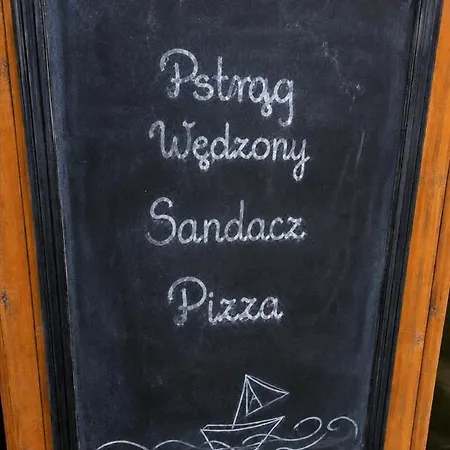 Pstrąg
Wędzony
Sandacz
Pizza
A